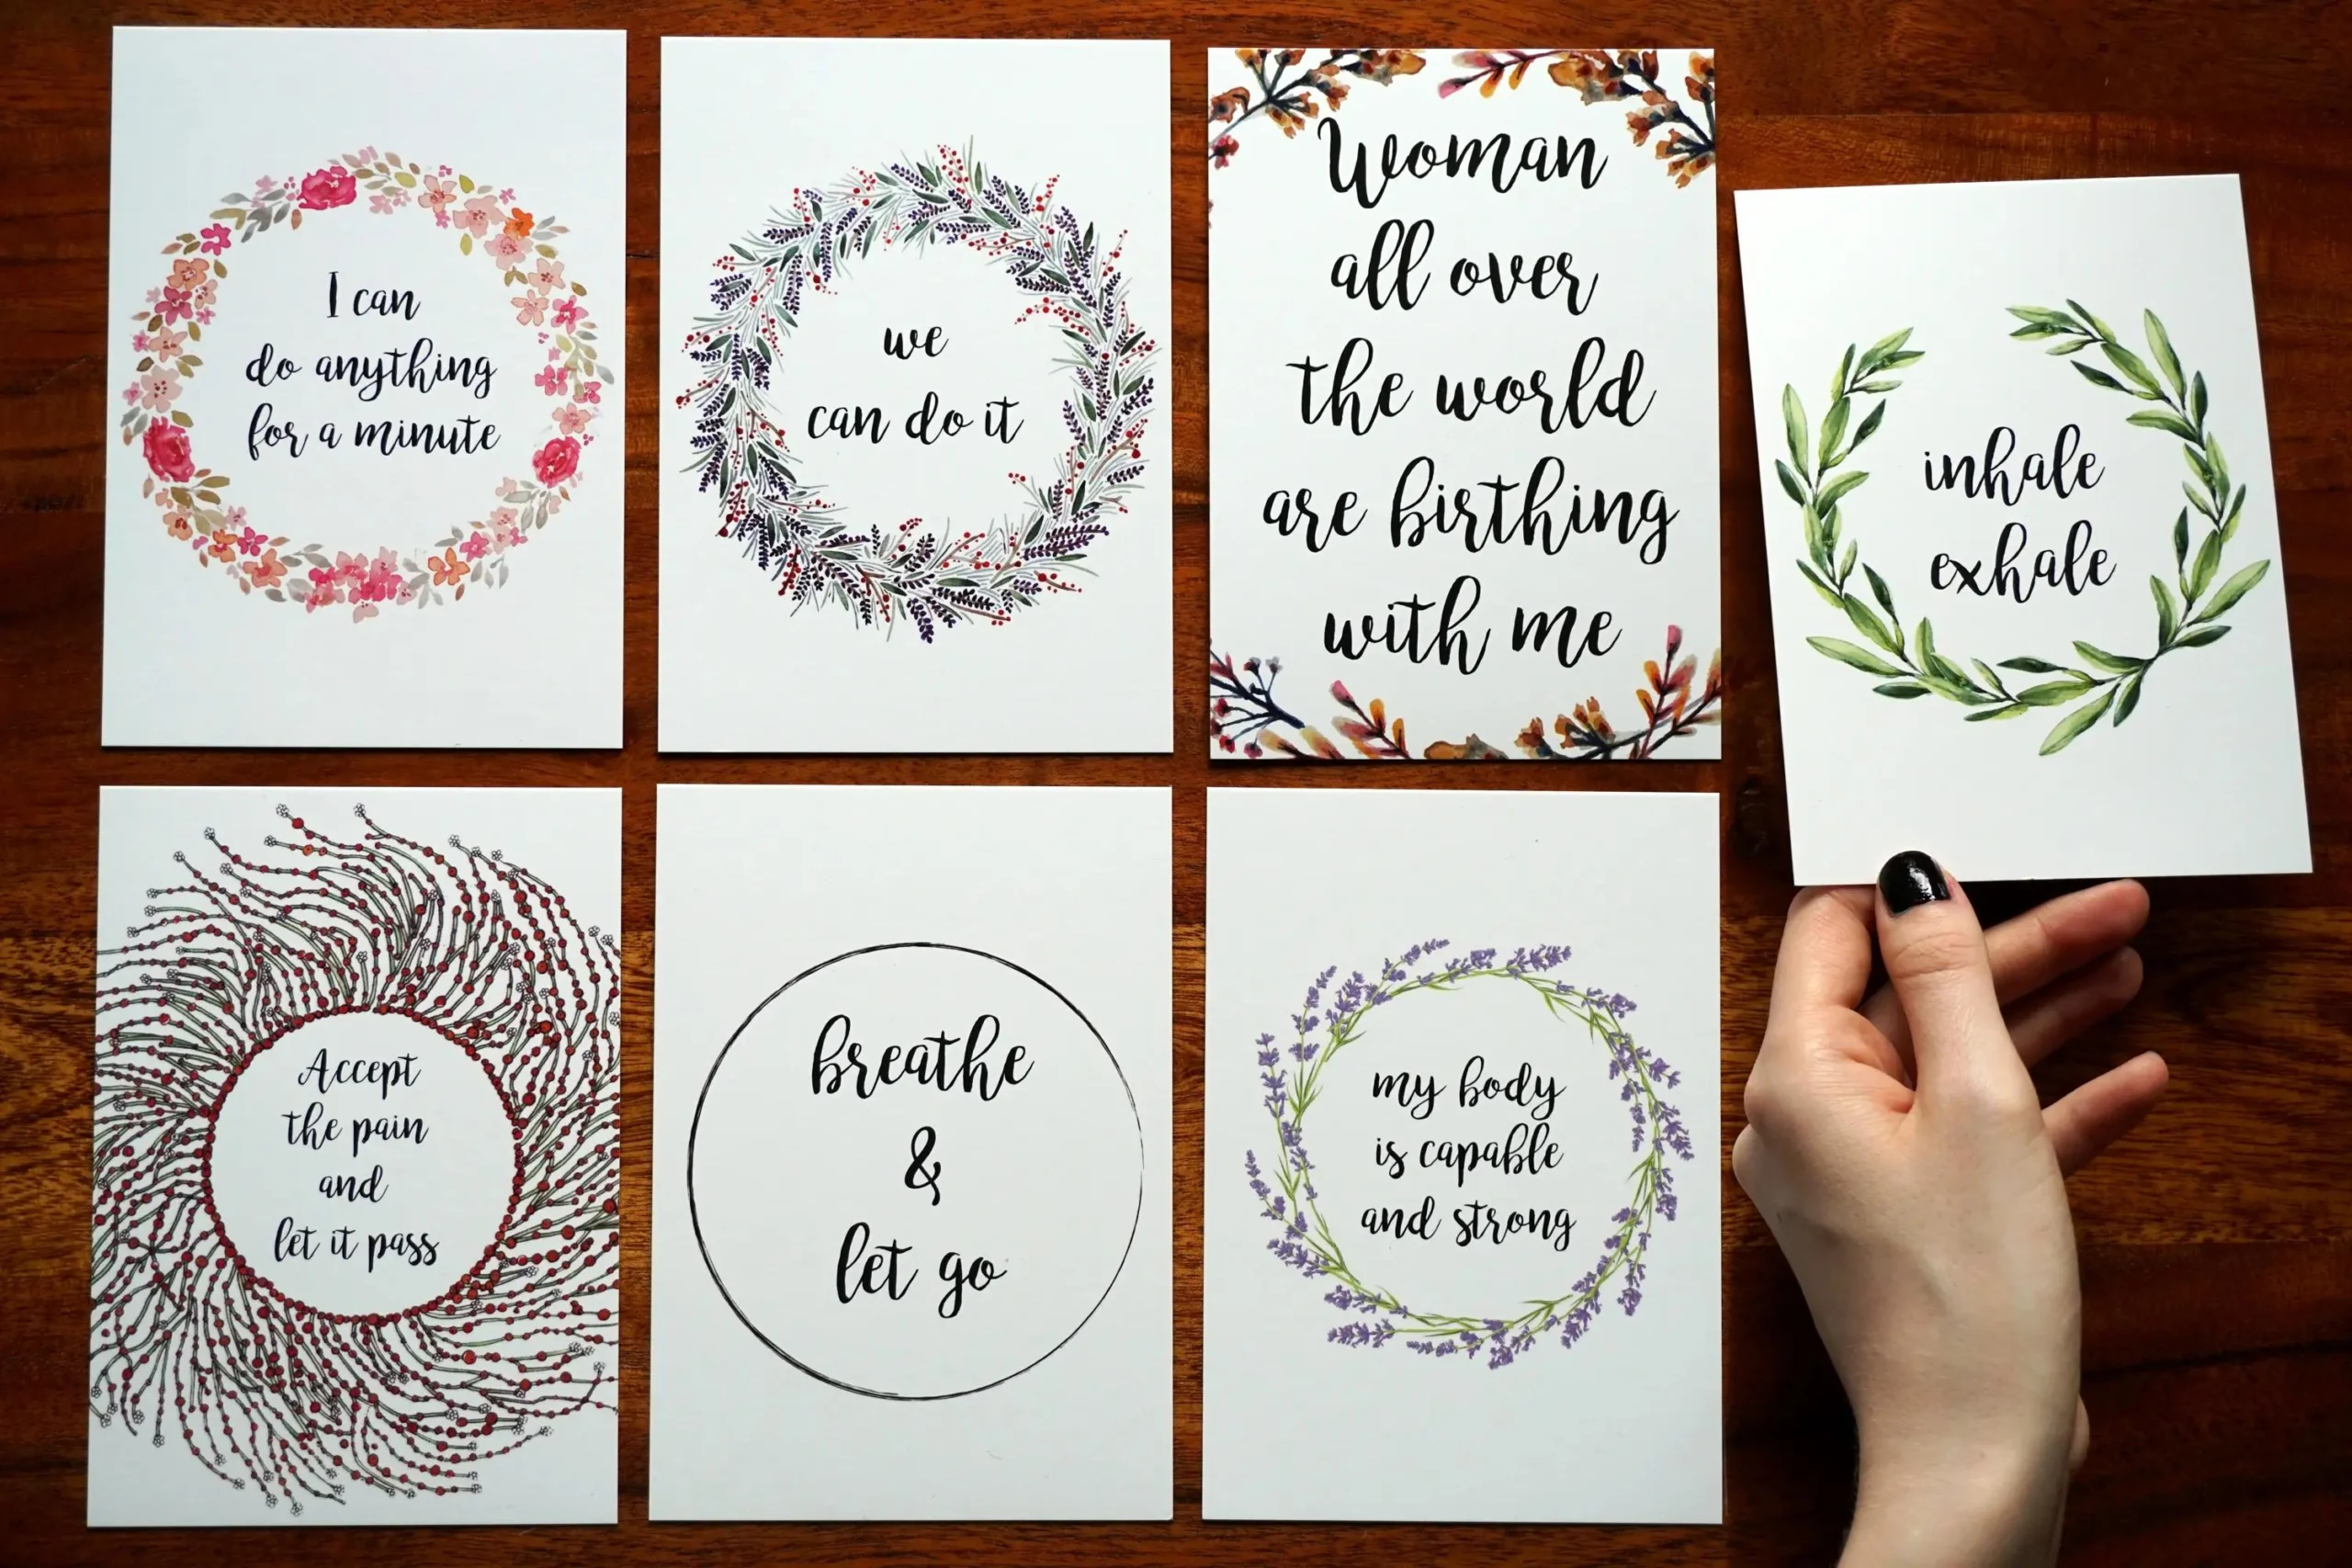 I can
do anything
for a minute
we
can do it
Woman
all over
the world
are birthing
with me
inhale
exhale
Accept
the pain
and
let it pass
breathe
&
let go
my body
is capable
and strong